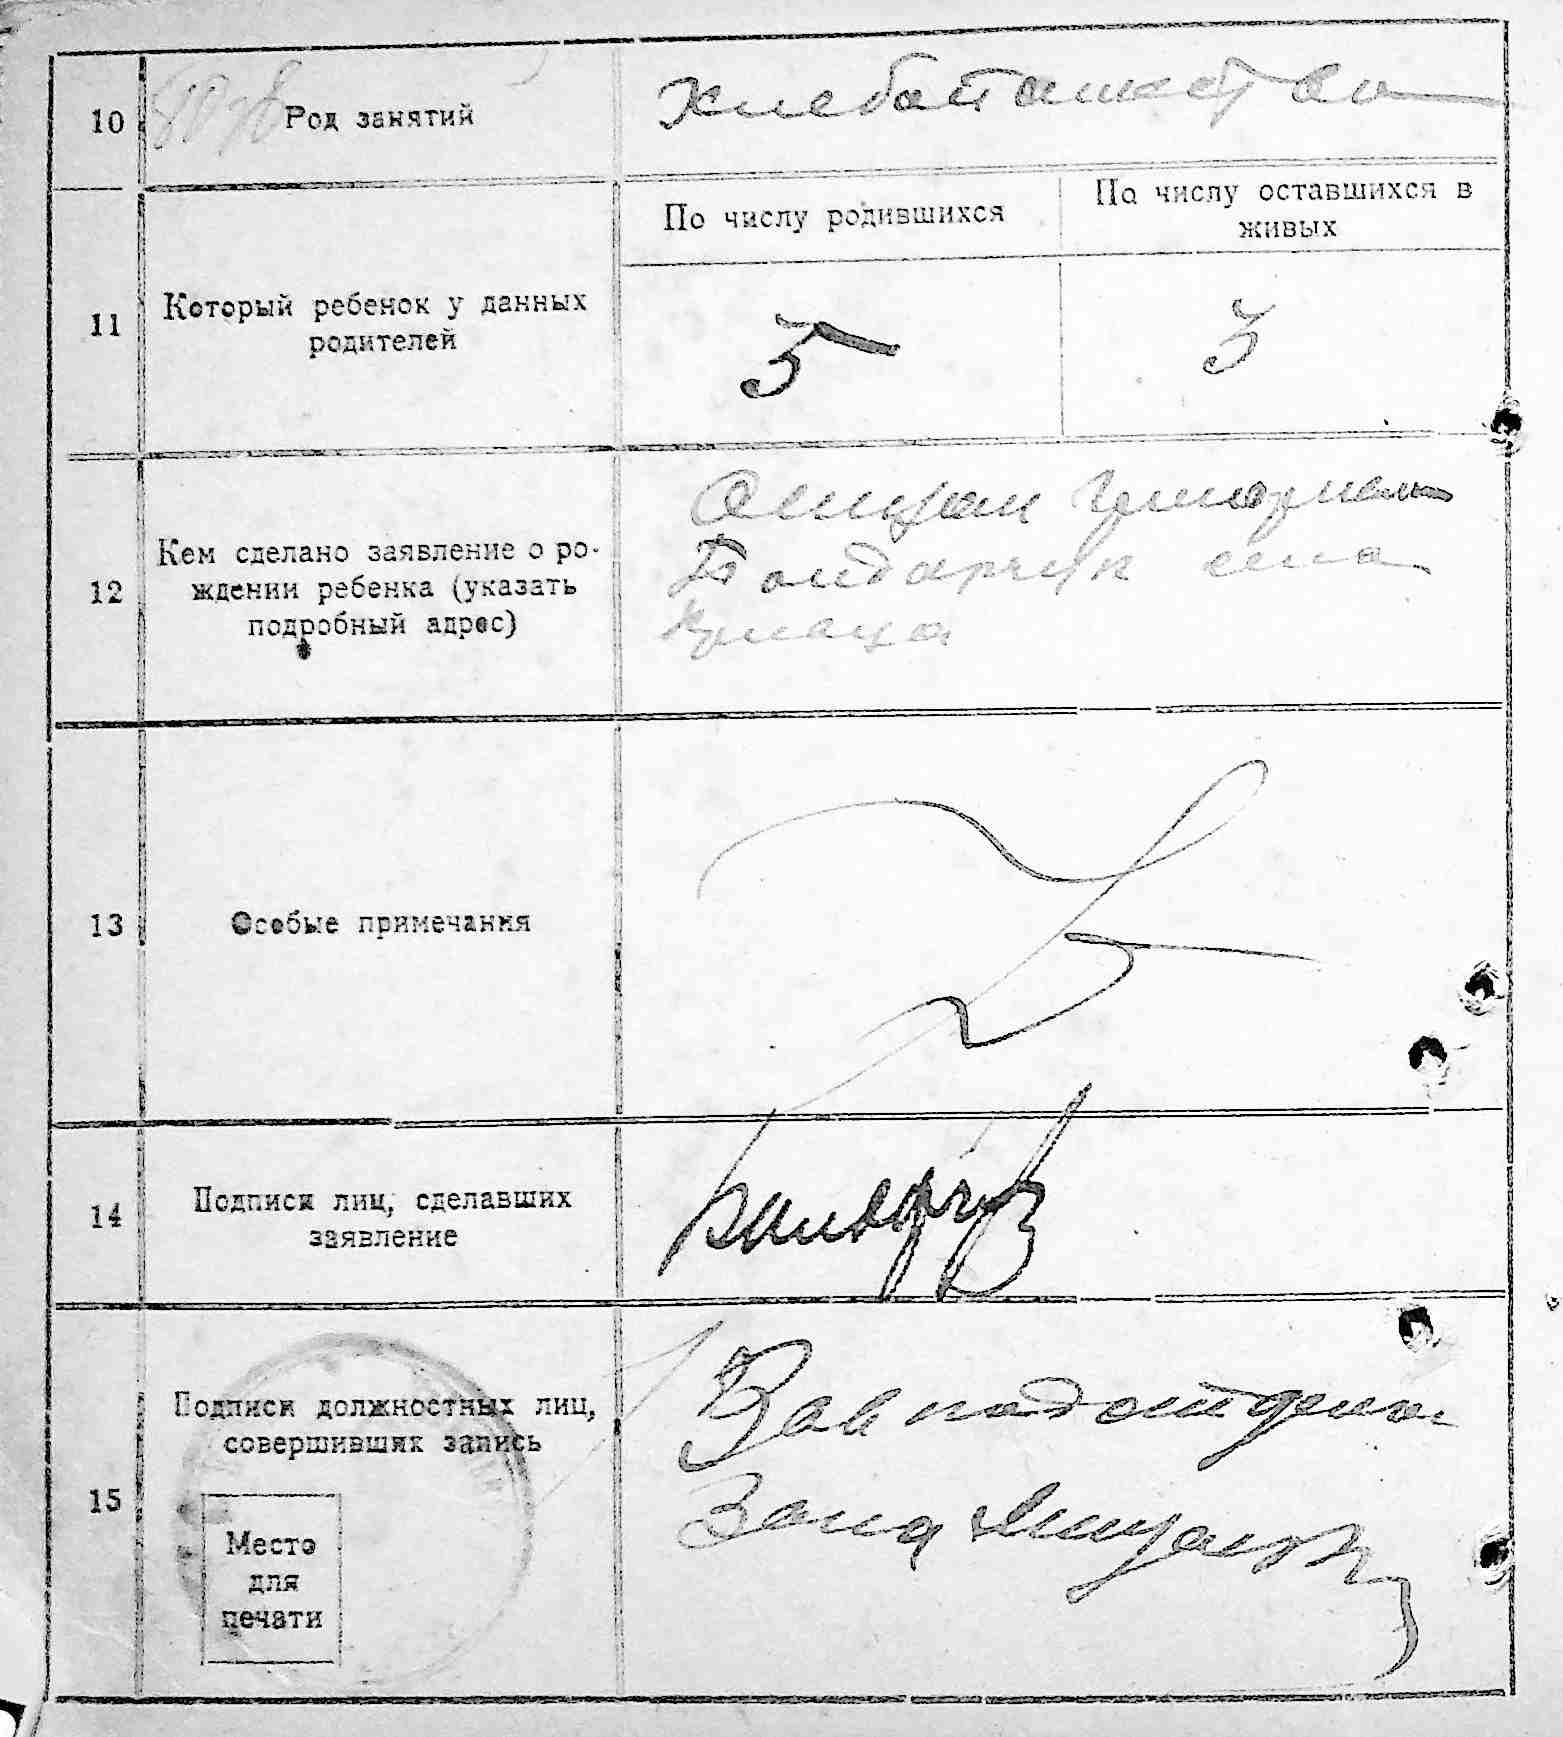 10
Род занятий
Хлебапашество
11
Который ребенок у данных
родителей
По числу родившихся
По числу оставшихся в
живых
5
3
12
Кем сделано заявление о ро-
ждении ребенка (указать
подробный адрес)
Бондарчук села
13
Особые примечания
14
Подписи лиц, сделавших
заявление
Бондарчук
15
Подписи должностных лиц,
совершивших запись
Место
для
печати
Зав